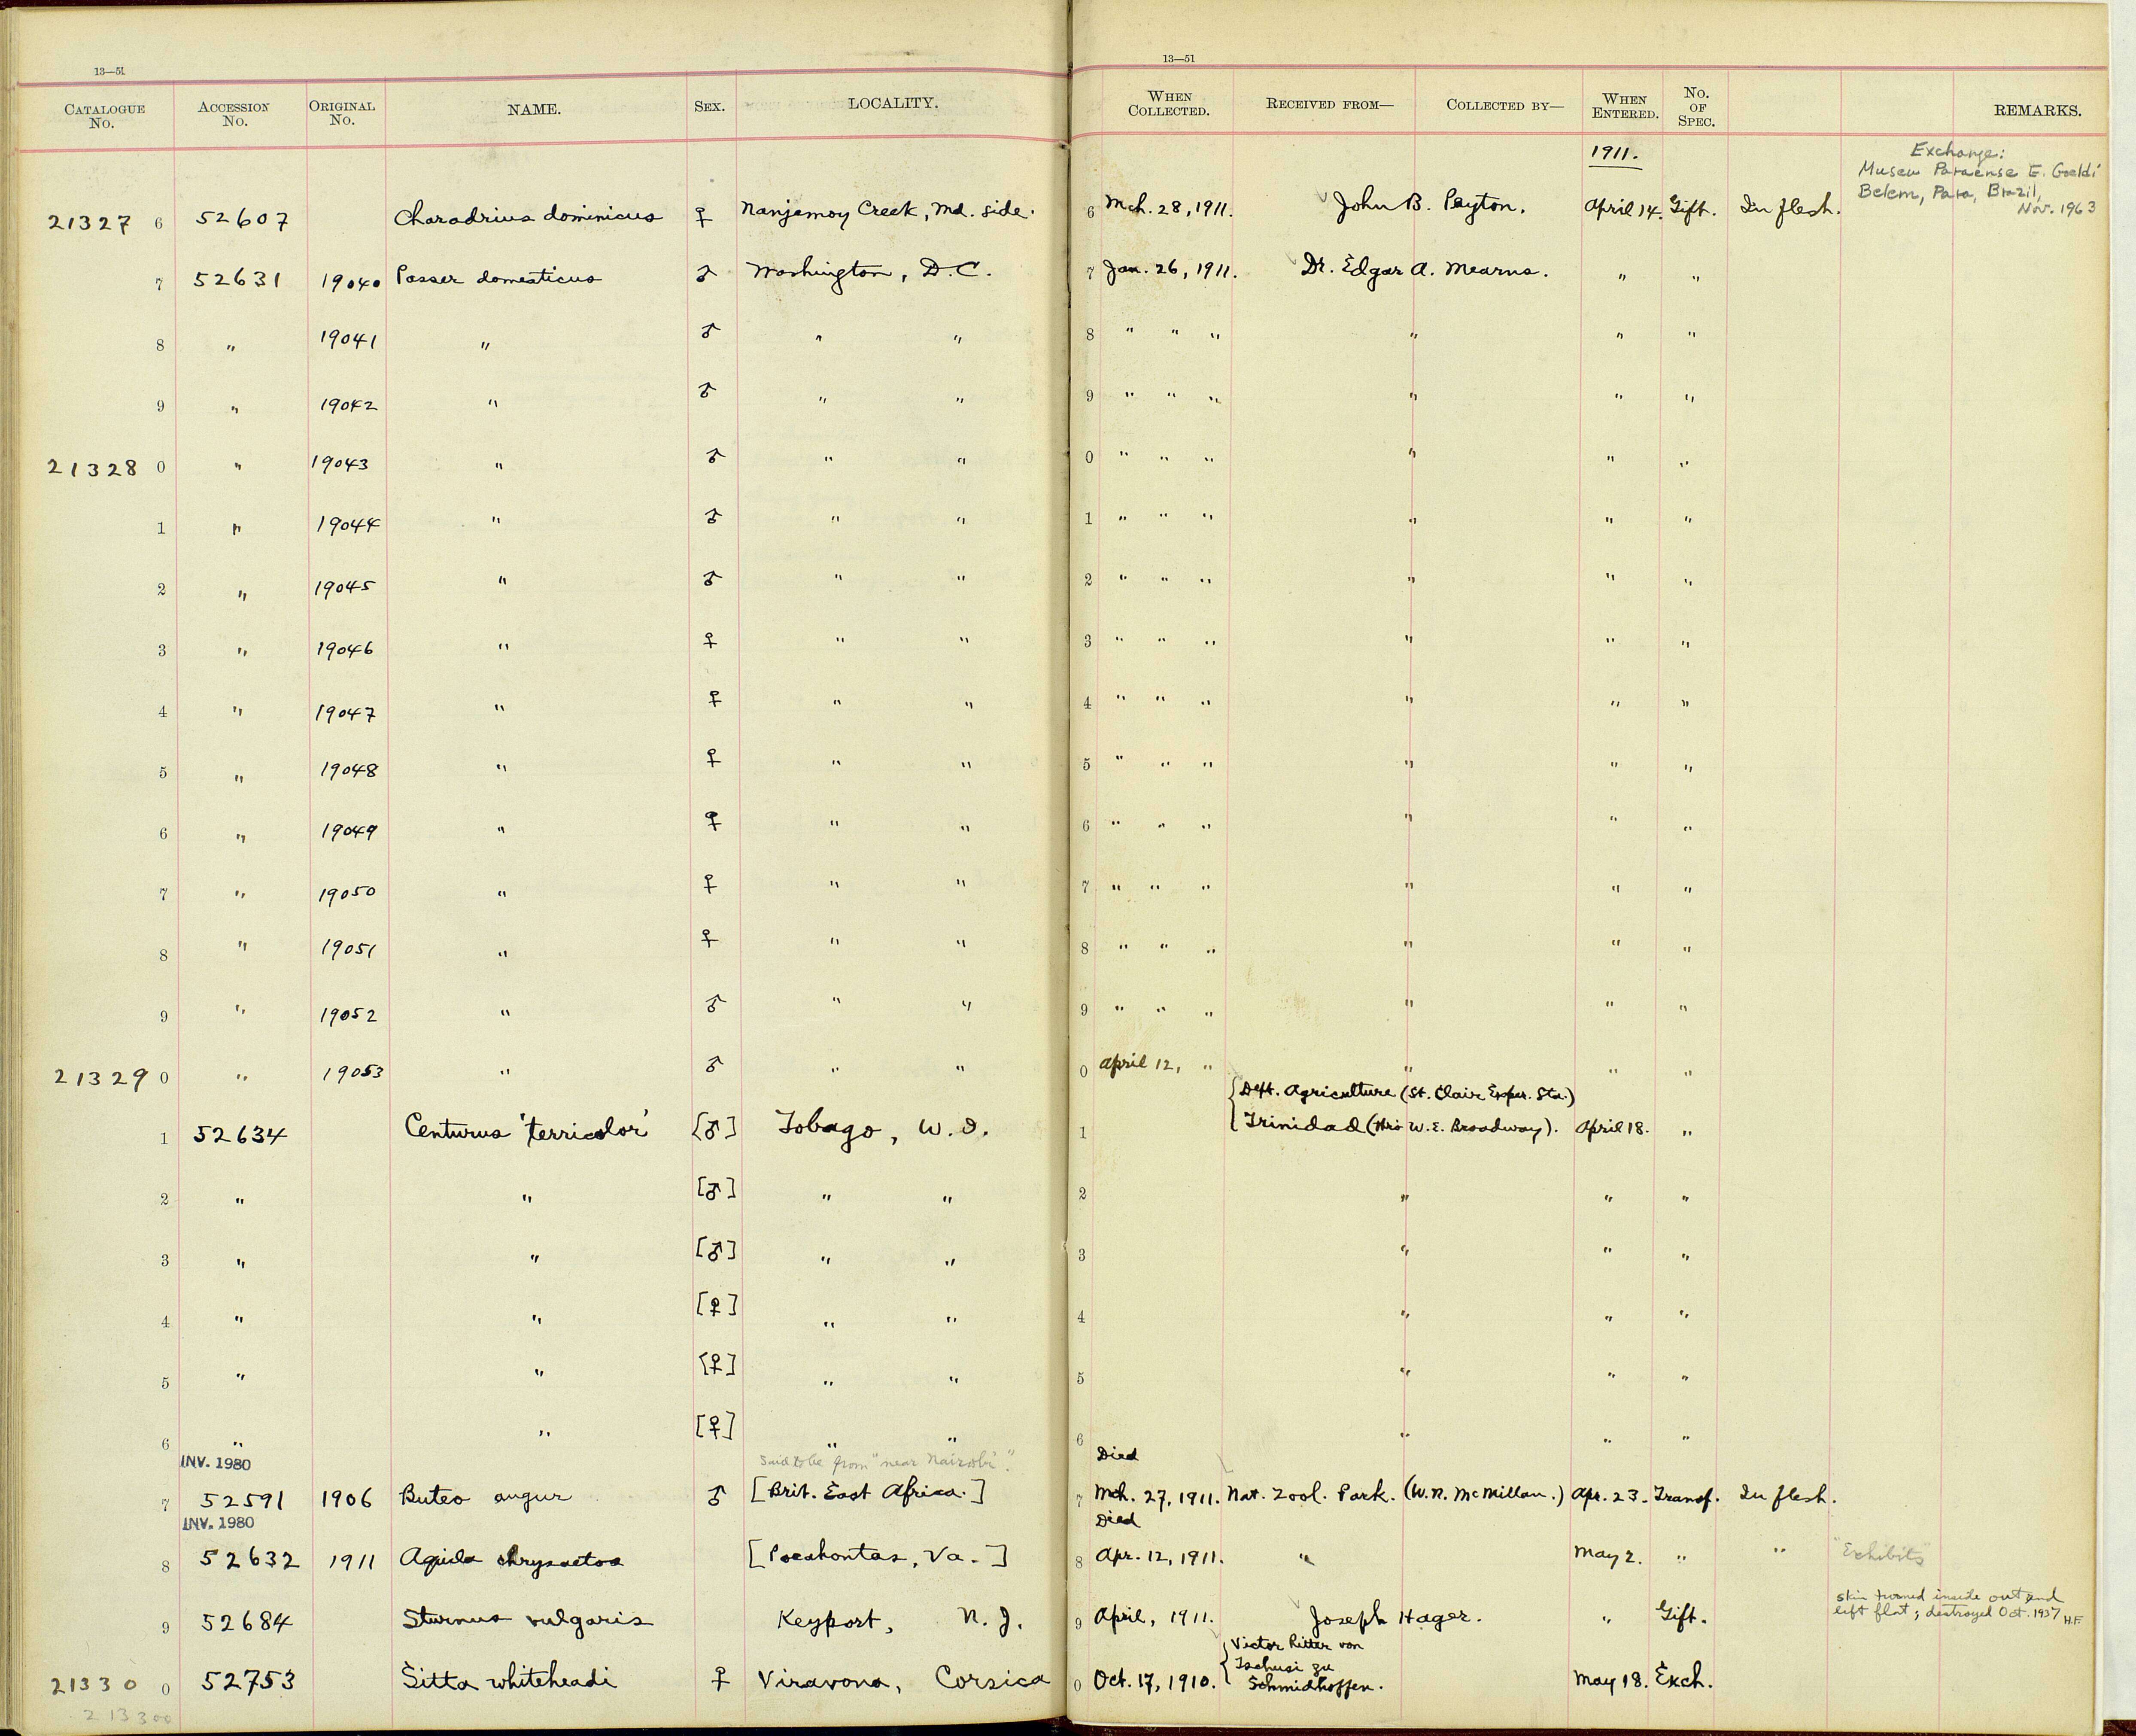 13—51 13—51
CATALOGUE No. ACCESSION No. ORIGINAL No. NAME. SEX. LOCALITY. WHEN COLLECTED. RECEIVED FROM— COLLECTED BY— WHEN ENTERED. No. OF SPEC. REMARKS.
1911. Exchange:
Museu Paraense E. Goeldi
Belem, Para, Brazil,
Nov. 1963
21327 6 52607 Charadrius dominicus ♀ Nanjemoy Creek, Md. side. 6 Mch. 28, 1911. John B. Peyton. April 14. Gift. In flesh.
7 52631 19040 Passer domesticus ♂ Washington, D.C. 7 Jan. 26, 1911. Dr. Edgar A. Mearns. " "
8 " 19041 " ♂ " " 8 " " " " " "
9 " 19042 " ♂ " " 9 " " " " " "
21328 0 " 19043 " ♂ " " 0 " " " " " "
1 " 19044 " ♂ " " 1 " " " " " "
2 " 19045 " ♂ " " 2 " " " " " "
3 " 19046 " ♀ " " 3 " " " " " "
4 " 19047 " ♀ " " 4 " " " " " "
5 " 19048 " ♀ " " 5 " " " " " "
6 " 19049 " ♀ " " 6 " " " " " "
7 " 19050 " ♀ " " 7 " " " " " "
8 " 19051 " ♀ " " 8 " " " " " "
9 " 19052 " ♂ " " 9 " " " " " "
21329 0 " 19053 " ♂ " " 0 April 12, " " " "
Dept. Agriculture (St. Clair Exper. Sta.)
1 52634 Centurus 'terricolor' [♂] Tobago, W.I. 1 Trinidad (thro W. E. Broadway). April 18. "
2 " " [♂] " " 2 " " "
3 " " [♂] " " 3 " " "
4 " " [♀] " " 4 " " "
5 " " [♀] " " 5 " " "
6 " " [♀] " " 6 " " "
INV. 1980 Said to be from "near Nairobi". Died
7 52591 1906 Buteo augur ♂ [Brit. East Africa.] 7 Mch. 27, 1911. Nat. Zool. Park. (W.N. McMillan.) Apr. 23. Transf. In flesh.
INV. 1980 Died
8 52632 1911 Aquila chrysaetos [Pocahontas, Va.] 8 Apr. 12, 1911. " May 2. " " "Exhibits"
skin turned inside out and
left flat; destroyed Oct. 1937 H.F.
9 52684 Sturnus vulgaris Keyport, N.J. 9 April, 1911. Joseph Hager. " Gift.
Victor Ritter von
Tschusi zu
21330 0 52753 Sitta whiteheadi ♀ Viravona, Corsica 0 Oct. 17, 1910. Schmidhoffen. May 18. Exch.
213300